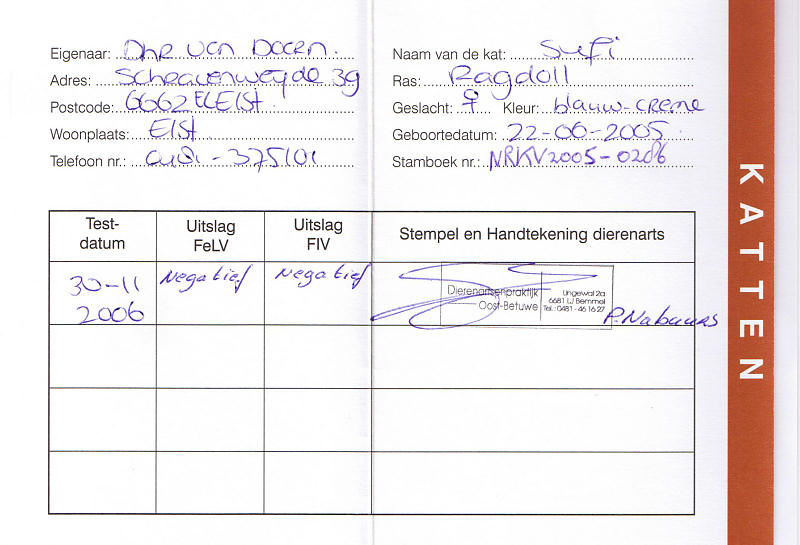 Eigenaar: Dhr van Doorn.
Adres: Schravenweyde 39
Postcode: 6662 EL Elst
Woonplaats: Elst
Telefoon nr.: 0481 - 375101
Naam van de kat: Sufi
Ras: Ragdoll
Geslacht: ♀ Kleur: blauw-creme
Geboortedatum: 22-06-2005
Stamboek nr.: NRKV2005-0286
Test-
datum
Uitslag
FeLV
Uitslag
FIV
Stempel en Handtekening dierenarts
30-11
2006
Negatief
Negatief
Dierenartsenpraktijk
Oost-Betuwe
Lingewal 2a
6681 LJ Bemmel
Tel.: 0481 - 46 16 27
P. Nabuurs
KATTEN